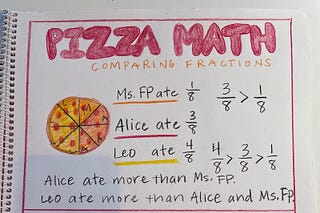 PIZZA MATH
COMPARING FRACTIONS
Ms. FP ate 1/8 3/8 > 1/8
Alice ate 3/8
Leo ate 4/8 4/8 > 3/8 > 1/8
Alice ate more than Ms. FP.
Leo ate more than Alice and Ms. FP.